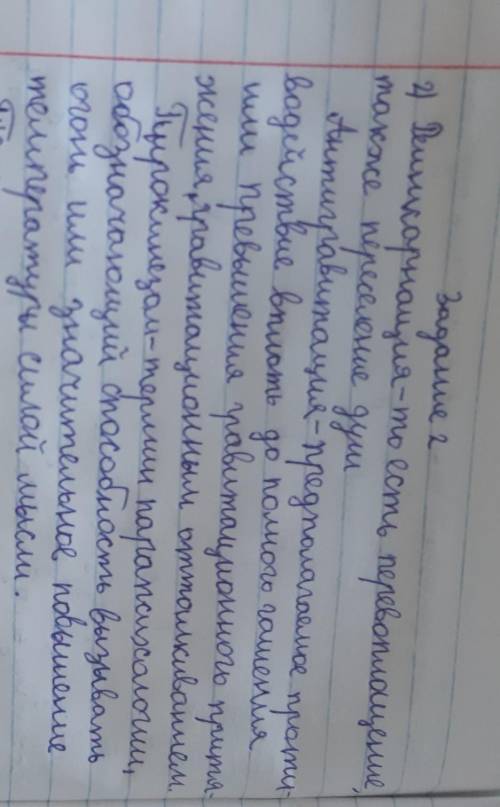 Задание 2
2) Реинкарнация-то есть перевоплощение,
также переселение душ
Антигравитация-предполагаемое проти-
водействие вплоть до полного гашения
или превышения гравитационного притя-
жения, гравитационным отталкиванием.
Пирокинезом-термин парапсихологии,
обозначающий способность вызывать
огонь или значительное повышение
температуры силой мысли.